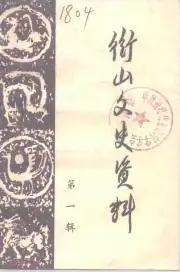 1804
衡山文史资料
第一辑